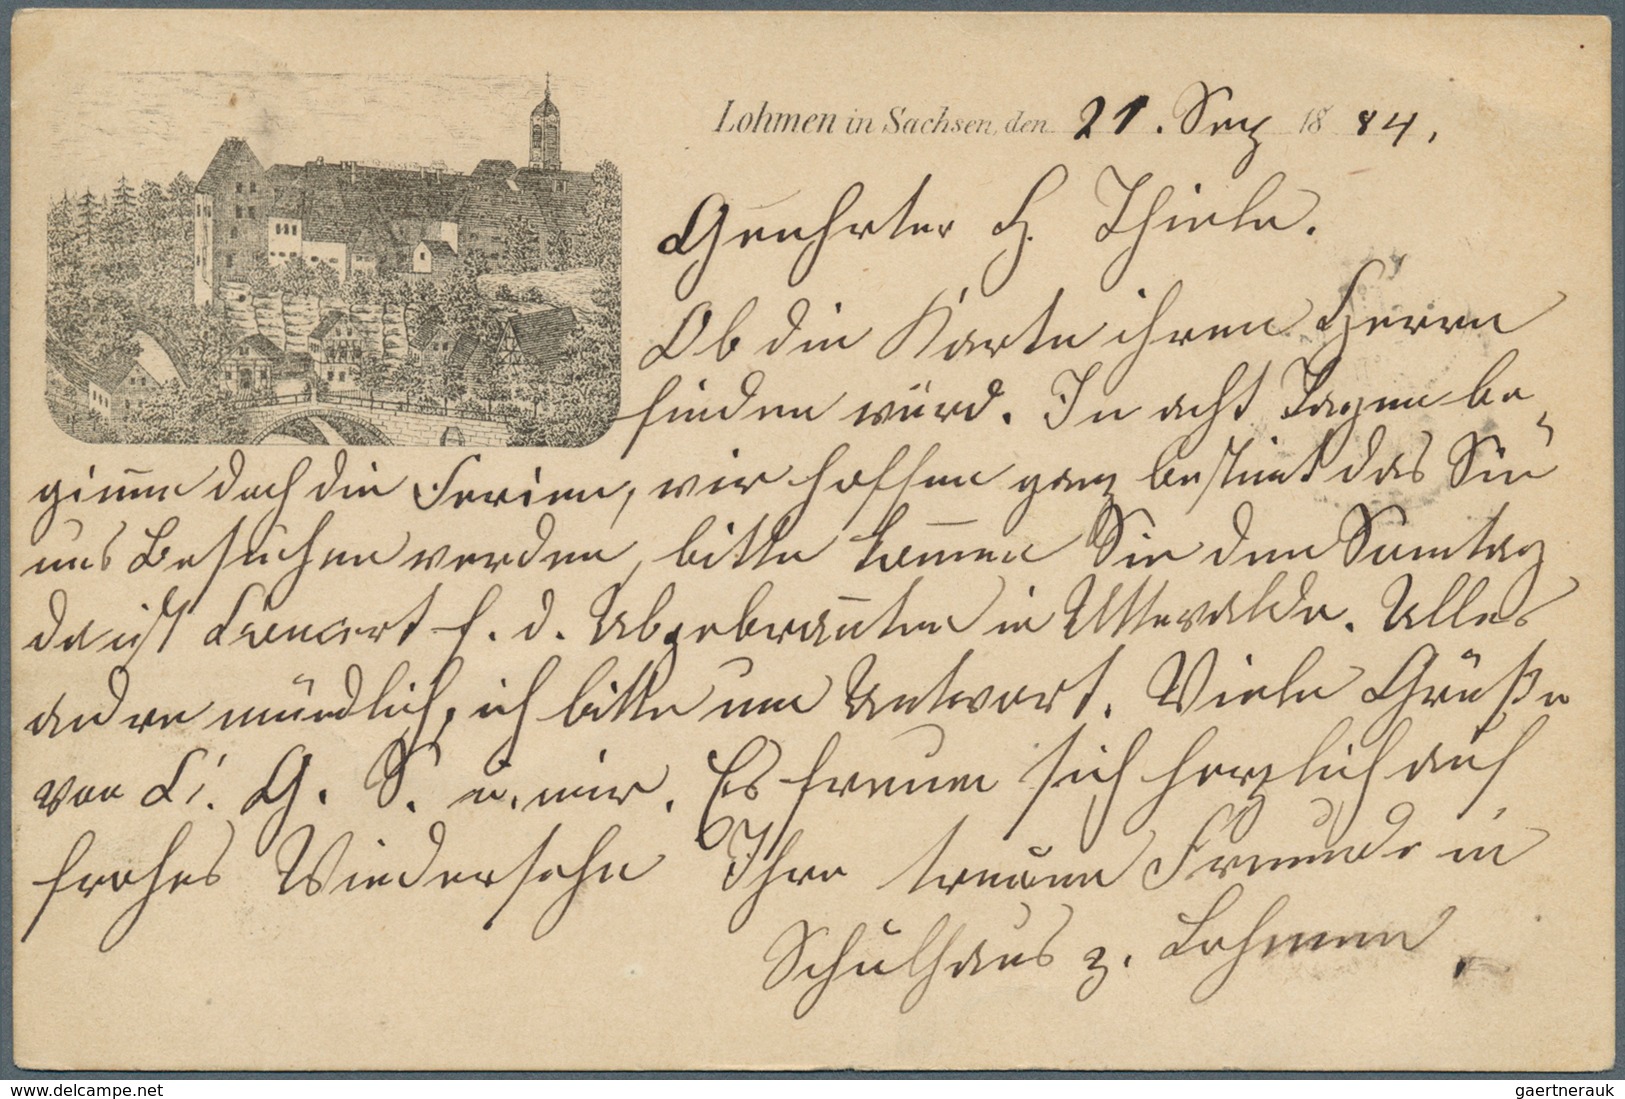 Lohmen in Sachsen, den 21. Sep 1884.
Geehrter H. Thiele.
Ob die Karte ihren Herrn
finden würd. In acht Tagen be-
ginnen doch die Ferien, wir hoffen ganz bestimt das Sie
uns Besuchen werden, bitte kommen Sie den Sonntag
da ist Concert f. d. Abgebrannten in Uttewalde. Alles
andre mündlich, ich bitte um Antwort. Viele Grüße
von L. G. S. u. mir. Es freuen sich herzlich auf
frohes Wiedersehn Ihre treuen Freunde in
Schulhaus z. Lohmen.
www.delcampe.net
gaertnerauk